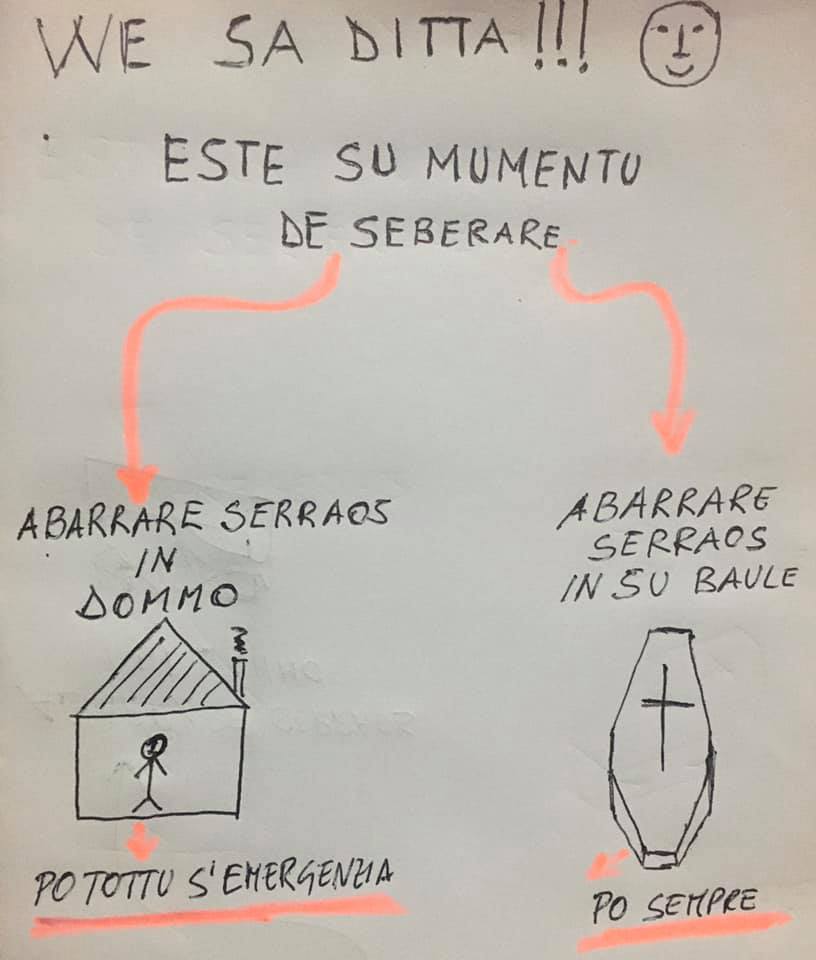 WE SA DITTA!!!
ESTE SU MUMENTU
DE SEBERARE
ABARRARE SERRAOS
IN
DOMMO
ABARRARE
SERRAOS
IN SU BAULE
PO TOTTU S'EMERGENZIA
PO SEMPRE